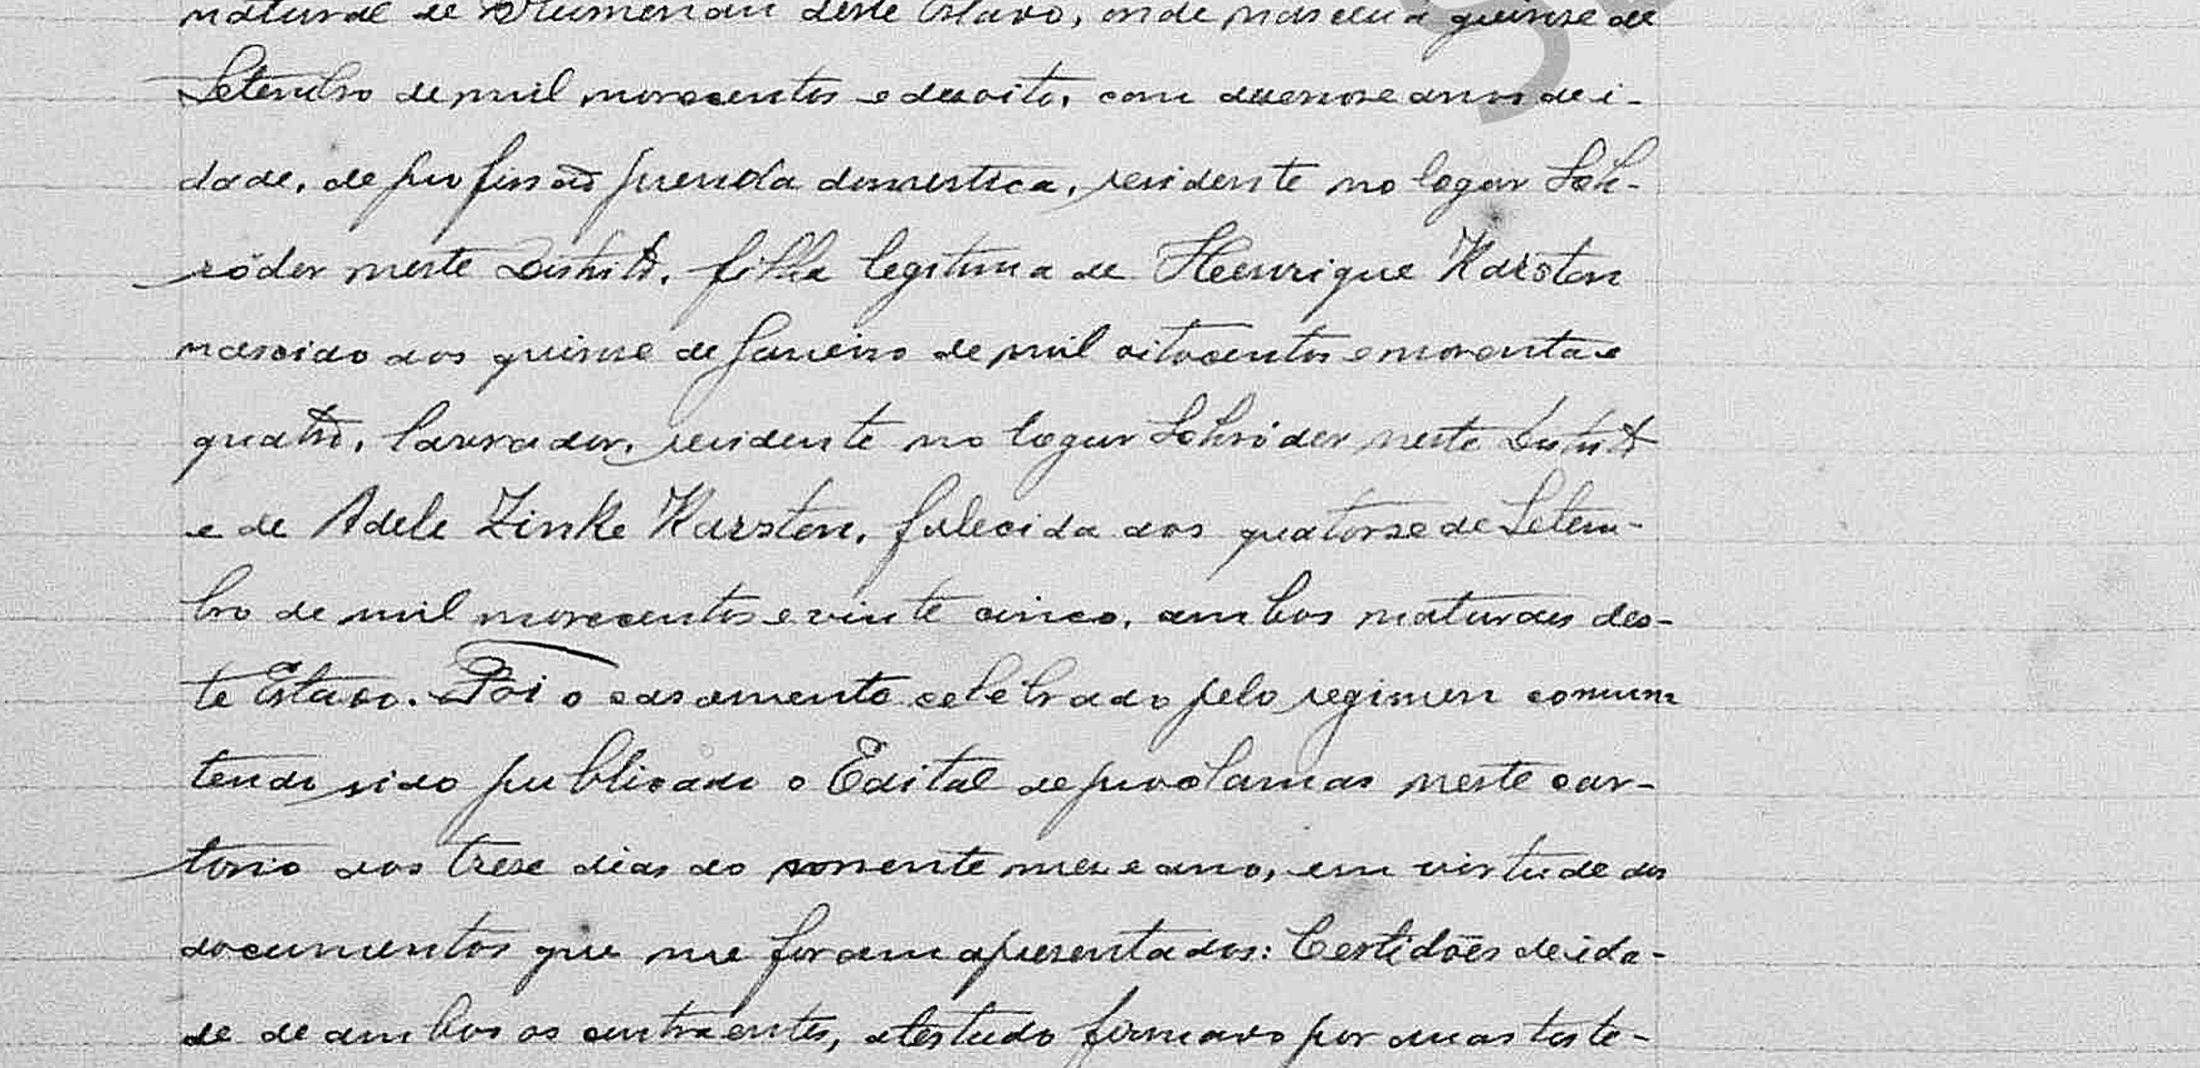 natural de Blumenau deste Estado, onde nasceu á quinse de
Setembro de mil novecentos e desoito, com desenove anos de i-
dade, de profissão prenda domestica, residente no logar Sch-
röder neste Distrito, filha legitima de Henrique Karsten
nascido aos quinse de Janeiro de mil oitocentos e noventa e
quatro, lavrador, residente no logar Schröder neste Distrito
e de Adele Zinke Karsten, falecida aos quatorse de Setem-
bro de mil novecentos e vinte cinco, ambos naturaes des-
te Estado. Foi o casamento celebrado pelo regimen comum
tendo sido publicado o Edital de proclamas neste car-
torio aos trese dias do corrente mes e ano, em virtude dos
documentos que me foram apresentados: Certidões de ida-
de de ambos os contraentes, atestado firmado por duas teste-